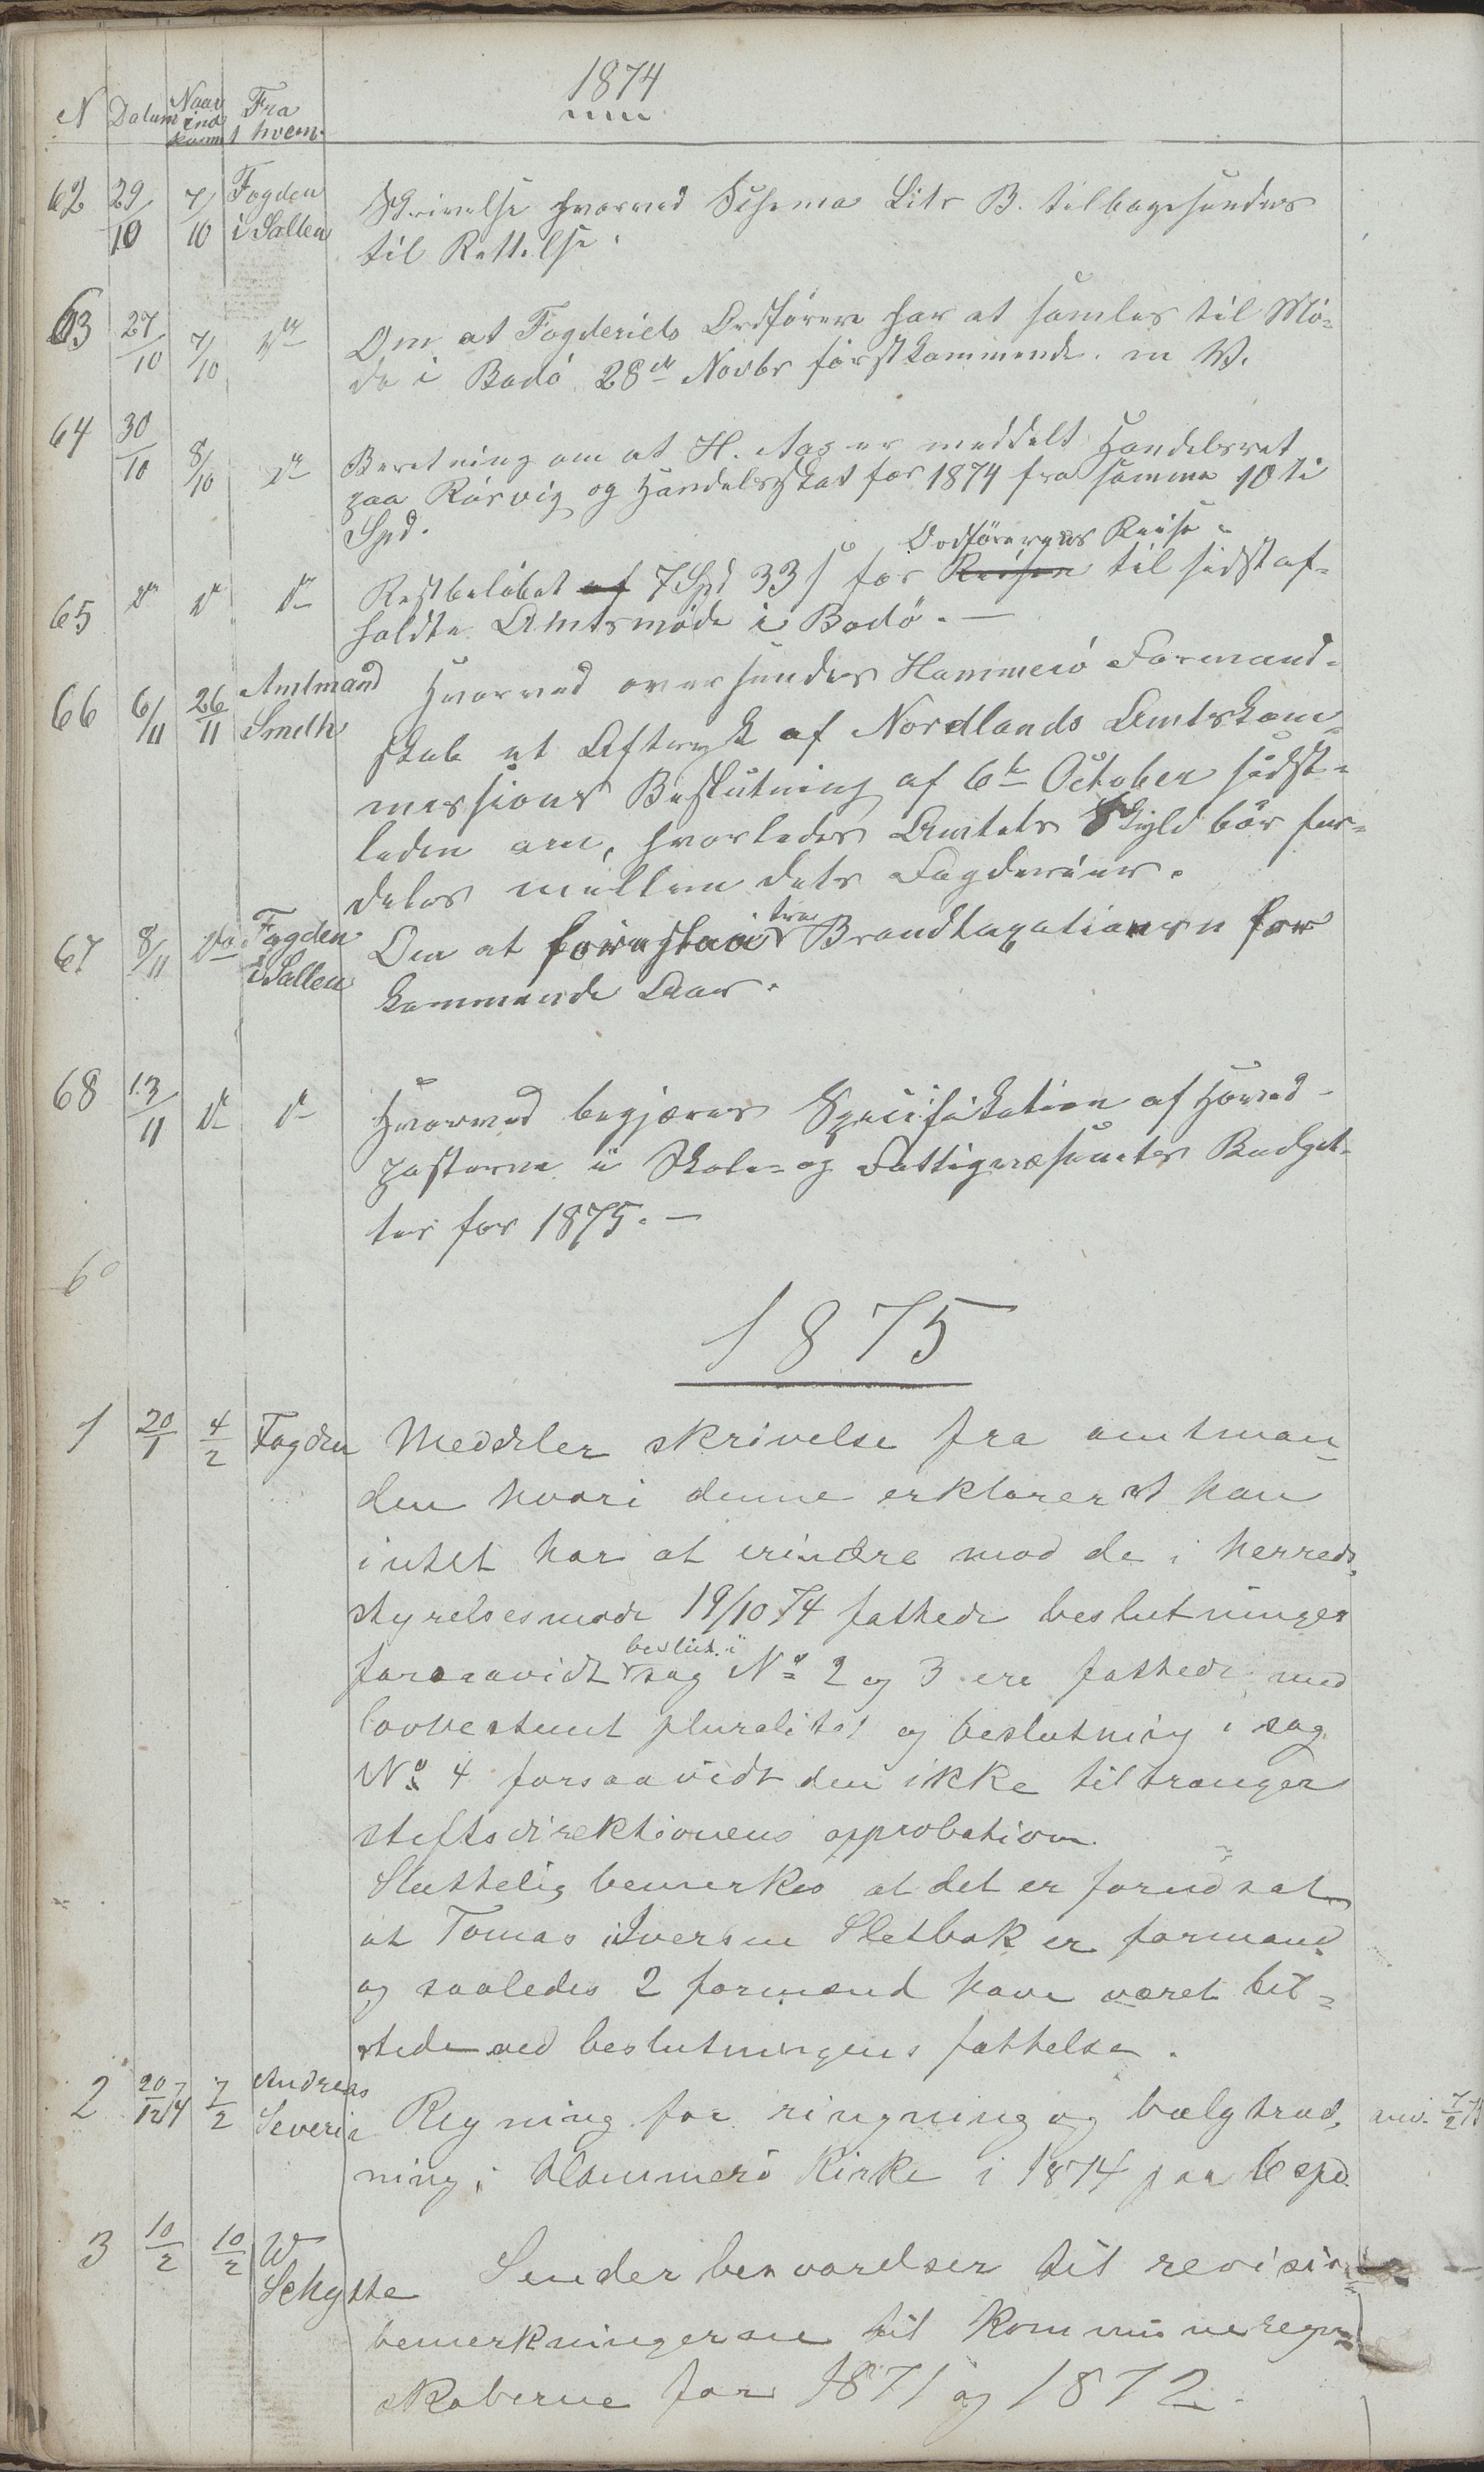 1874
N Datum Naar indkom Fra hvem
62 29/10 7/10 Fogden i Salten Skrivelse hvorved Schema Litr B. tilbagesendes
til Rettelse.
63 27/10 7/10 Do Om at Fogderiets Ordförere har at samles til Mö-
de i Bodö 28de Novbr förstkommende. m V.
64 30/10 8/10 Do Beretning om at H. Aag er meddelt Handelsret
paa Rörvig og Handelsskat for 1874 fra samme 10 ti
Spd.
Ordförerens Reise-
65 Do Do Do Restbelöbet af 7 Spd 33 s for Reisen til sidst af-
holdte Amtsmöde i Bodö. —
66 6/11 26/11 Amtmand Smith Hvorved oversendes Hammerö Formand-
skab et Aftryk af Nordlands Amtskom-
missions Beslutning af 6te October sidst-
leden om, hvorledes Amtets Skyld bör for-
deles mellem dets Fogderier.
67 8/11 Do Fogden i Salten Om at forestaa Brandtaxationen for
kommende Aar.
68 13/11 Do Do Hvorved begjæres Specifikation af Hoved-
posterne i Skole- og Fattigvæsenets Budget-
ter for 1875. —
6
1875
1 20/1 4/2 Fogden Meddeler skrivelse fra amtman-
den hvori denne erklærer at han
intet har at erindre mod de i herreds-
styrelsesmøde 19/10 74 fattede beslutninger
beslut. i
forsaavidt sag No 2 og 3 ere fattede med
lovbestemt pluralitet og beslutning i sag
No 4 forsaavidt den ikke tiltrænger
stiftsdirektionens approbation.
Sluttelig bemerkes at det er forudsat
at Tomas Iversen Sletbak er formand
og saaledes 2 formænd have været til-
stede ved beslutningens fattelse.
2 20/12 74 7/2 Andreas Severin Regning for ringning og bælgtræd- anv. 7/2
ning i Hammerö Kirke i 1874 paa 6 spd.
3 10/2 10/2 W Schytte Sender besvarelser til revisions-
bemerkningerne til Kommuneregn-
skaberne for 1871 og 1872.